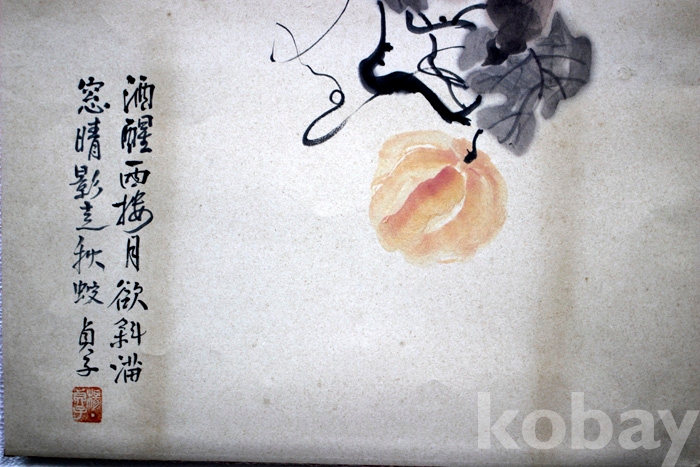 酒醒西楼月欲斜滿
窓晴影走秋蛟 貞子
kobay